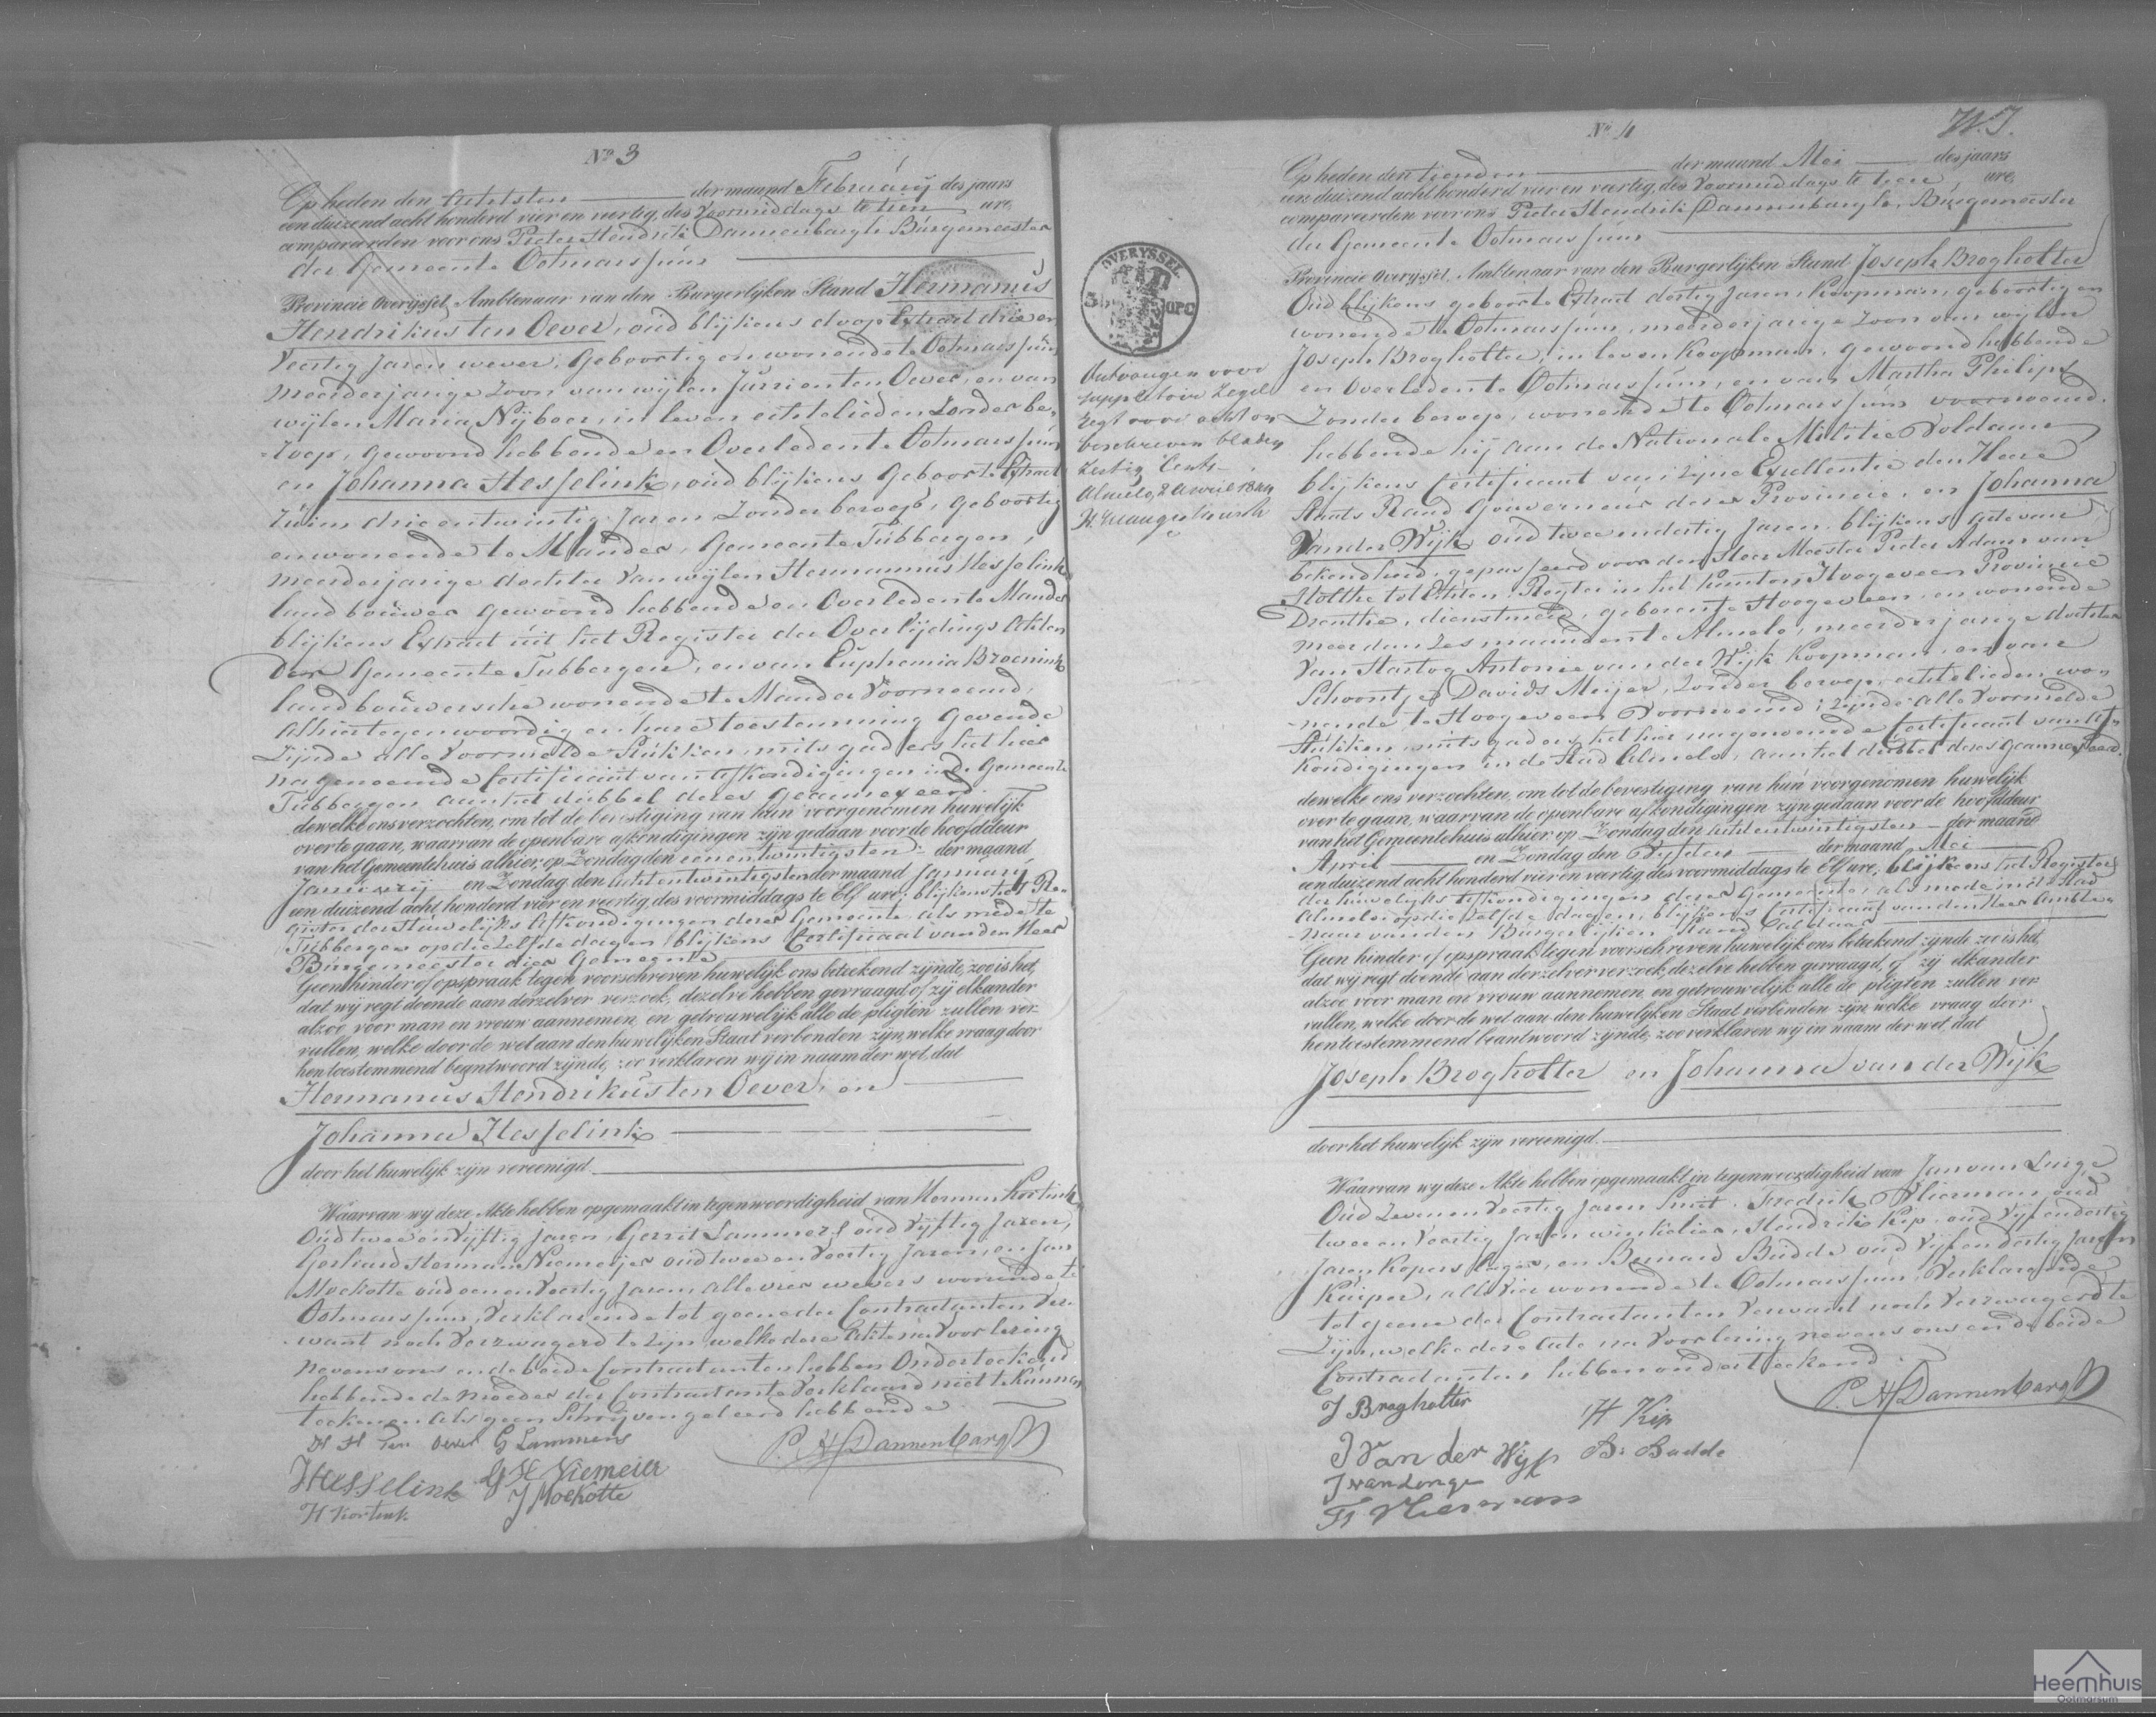 No 3
Op heden den achtsten der maand February des jaars
een duizend acht honderd vier en veertig, des Voormiddags te tien ure,
compareerden voor ons Pieter Hendrik Dannenbargh Burgemeester
der Gemeente Ootmarssum
Provincie Overijssel, Ambtenaar van den Burgerlijken Stand Hermanus
Hendrikus ten Oever, oud blijkens doop Extract drie en
Veertig Jaren wever, Geboortig en wonende te Ootmarssum
meerderjarige Zoon van wijlen Jurrien ten Oever, en van
wijlen Maria Nijboer, in leven echtelieden Zonder be-
roep, gewoond hebbende en Overleden te Ootmarssum
en Johanna Hesselink, oud blijkens Geboorte Extract
ruim drie en twintig Jaren Zonder beroep, Geboortig
en wonende te Mander, Gemeente Tubbergen,
meerderjarige dochter van wijlen Hermannus Hesselink
landbouwer gewoond hebbende en Overleden te Mander
blijkens Extract uit het Register der Overlijdings Akten
der Gemeente Tubbergen, en van Euphemia Broenink
landbouwersche wonende te Mander Voornoemd,
alhier tegenwoordig en hare toestemming Gevende
Zijnde alle Voormelde Stukken, mits gaders het hier
nagenoemde Certificaat van Afkondigingen in de Gemeente
Tubbergen aan het dubbel dezes Geannexeerd
dewelke ons verzochten, om tot de bevestiging van hun voorgenomen huwelijk
over te gaan, waarvan de openbare afkondigingen zijn gedaan voor de hoofddeur
van het Gemeentehuis alhier, op Zondag den eenentwintigsten der maand
January en Zondag den achtentwintigsten der maand January
een duizend acht honderd vier en veertig, des voormiddags te Elf ure, blijkens het Re-
gister der Huwelijks Afkondigingen dezer Gemeente als mede te
Tubbergen op die Zelfde dagen blijkens Certificaat van den Heer
Burgemeester dier Gemeente
Geen hinder of opspraak tegen voorschreven huwelijk ons betekend zijnde, zoo is het,
dat wij regt doende aan derzelver verzoek, dezelve hebben gevraagd, of zij elkander
alzoo voor man en vrouw aannemen, en getrouwelijk alle de pligten zullen ver-
vullen, welke door de wet aan den huwelijken Staat verbonden zijn, welke vraag door
hen toestemmend beantwoord zijnde, zoo verklaren wij in naam der wet, dat
Hermanus Hendrikus ten Oever, en
Johanna Hesselink
door het huwelijk zijn vereenigd.
Waarvan wij deze Akte hebben opgemaakt in tegenwoordigheid van Hermen Kortink
Oud twee en Vijftig Jaren, Gerrit Lammers oud Vijftig Jaren,
Gerhard Herman Niemeijer oud twee en Veertig Jaren, en Jan
Moekotte oud een en Veertig Jaren, alle vier wevers wonende te
Ootmarssum, Verklarende tot geene der Contractanten Ver-
want noch Verzwagerd te zijn welke deze Akte na Voorlezing
nevens ons en de beide Contractanten hebben Onderteekend
hebbende de moeder der Contractante Verklaard niet te kunnen
teekenen als geen Schrijven geleerd hebbende
H H ten Oever G Lammers
P. H Dannenbargh
J Hesselink G H Niemeier
J Moekotte
H Kortink
OVERYSSEL
OPC
Ontvangen voor
suppletoire Zegel
regt voor acht on
beschreven bladen
Zestig Cents
Almelo, 2 April 1844
No 4
W. J.
Op heden den tienden der maand Mei des jaars
een duizend acht honderd vier en veertig, des Voormiddags te tien ure,
compareerden voor ons Pieter Hendrik Dannenbargh, Burgemeester
der Gemeente Ootmarssum
Provincie Overijssel, Ambtenaar van den Burgerlijken Stand Joseph Bragholter
Oud blijkens geboorte Extract dertig Jaren, Koopman, geboortig en
wonende te Ootmarssum, meerderjarige Zoon van wijlen
Joseph Bragholter, in leven Koopman, gewoond hebbende
en Overleden te Ootmarssum, en van Martha Philips
Zonder beroep, wonende te Ootmarssum voornoemd.
hebbende hij aan de Nationale Militie Voldaan
blijkens Certificaat van Zijne Excellentie den Heere
Staats Raad Gouverneur dezer Provincie, en Johanna
Van der Wijk oud twee en dertig Jaren, blijkens acte van
bekendheid, gepasseerd voor den Heer Meester Pieter Adam van
Holthe tot Echten, Regter in het Kanton Hoogeveen Provincie
Drenthe, dienstmeid, geboren te Hoogeveen, en wonende
meer dan zes maanden te Almelo, meerderjarige dochter
Van Hartog Antonie van der Wijk Koopman, en van
Schoontje Davids Meijer, Zonder beroep, echtelieden wo-
nende te Hoogeveen Voornoemd; Zijnde alle Voormelde
Stukken mits gaders het hier nagenoemde Certificaat van Af-
kondigingen in de Stad Almelo, aan het dubbel dezes Geannexeerd.
dewelke ons verzochten, om tot de bevestiging van hun voorgenomen huwelijk
over te gaan, waarvan de openbare afkondigingen zijn gedaan voor de hoofddeur
van het Gemeentehuis alhier, op Zondag den achtentwintigsten der maand
April en Zondag den Vyfden der maand Mei
een duizend acht honderd vier en veertig, des voormiddags te Elf ure, blijkens het Register
der huwelijks Afkondigingen dezer Gemeente, als mede in de Stad
Almelo op die Zelfde dagen, blijkens Certificaat van den Heer Ambte-
naar van den Burgerlijken Stand aldaar
Geen hinder of opspraak tegen voorschreven huwelijk ons betekend zijnde, zoo is het,
dat wij regt doende aan derzelver verzoek, dezelve hebben gevraagd, of zij elkander
alzoo voor man en vrouw aannemen, en getrouwelijk alle de pligten zullen ver-
vullen, welke door de wet aan den huwelijken Staat verbonden zijn, welke vraag door
hen toestemmend beantwoord zijnde, zoo verklaren wij in naam der wet, dat
Joseph Bragholter en Johanna van der Wijk
door het huwelijk zijn vereenigd.
Waarvan wij deze Akte hebben opgemaakt in tegenwoordigheid van Jan van Linge
Oud Zeven en Veertig Jaren Smit, Fredrik Vlierman oud
twee en Veertig Jaren winkelier, Hendrik Kip, oud Vijf en dertig
Jaren Koperslager, en Bernard Budde oud Vijf en dertig Jaren
Kuiper, alle Vier wonende te Ootmarssum, Verklarende
tot geene der Contractanten Verwant noch Verzwagerd te
Zijn, welke deze Acte na Voorlezing nevens ons en de beide
Contractanten hebben onderteekend
J Bragholter H Kip P. H Dannenbargh
J Van der Wyk B: Budde
J van Linge
F Vlierman
Heemhuis
Ootmarsum